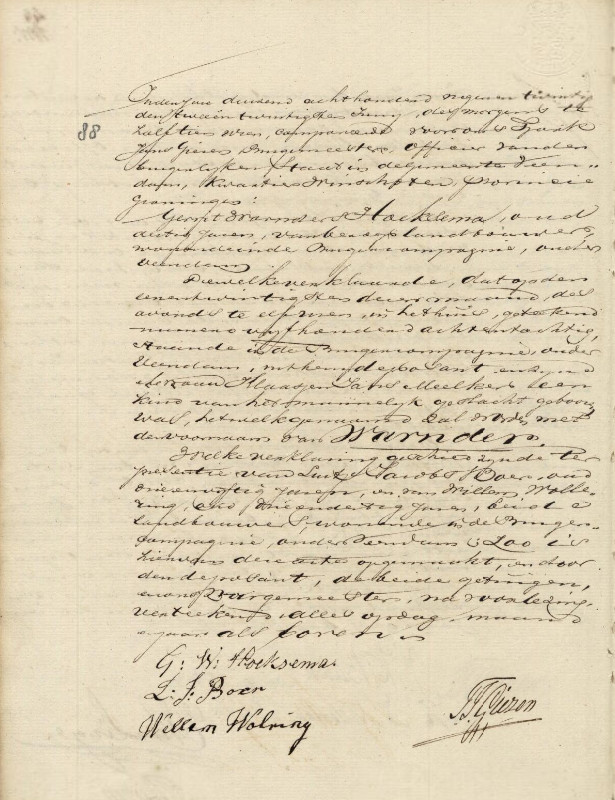 88
In den Jare duizend achthonderd negen en twintig
den twee en twintigsten Juny, des morgens te
half tien uren, compareerde voor ons Isaak
Jans Giezen Burgemeester, Officier van den
burgerlijken Staat in de gemeente Veen-
dam, kwartier Winschoten, provincie
Groningen:
Gerrit Warnders Hoeksema, oud
dertig Jaren, van beroep landbouwer,
wonende in de Burgercompagnie, onder
Veendam
Dewelke verklaarde, dat op den
een en twintigsten dezer maand, des
avonds te elf uren, in het huis, getekend
numero vijfhonderd acht en tachtig,
staande in de Burgercompagnie, onder
Veendam, uit hem deposant en zijne
vrouw Klaasjen Jans Meelker een
kind van het mannelijk geslacht geboren
was, hetwelk genaamd zal worden met
de voornaam van Warnder.
Zodke verklaring geschied zijnde ter
presentie van Luitje Jacobs Boer, oud
drie en vijftig Jaren, en van Willem Wolte-
ring, oud drie en dertig Jaren, beide
Landbouwers, wonende in de Burger-
compagnie, onder Veendam; Zoo is
hiervan deze acte opgemaakt, en door
den deposant, de beide getuigen,
en ons Burgemeester, na voorlezing,
vertekend, alles op dag, maand
en jaar als boven
G: W: Hoeksema.
L. J. Boer
Willem Wolring